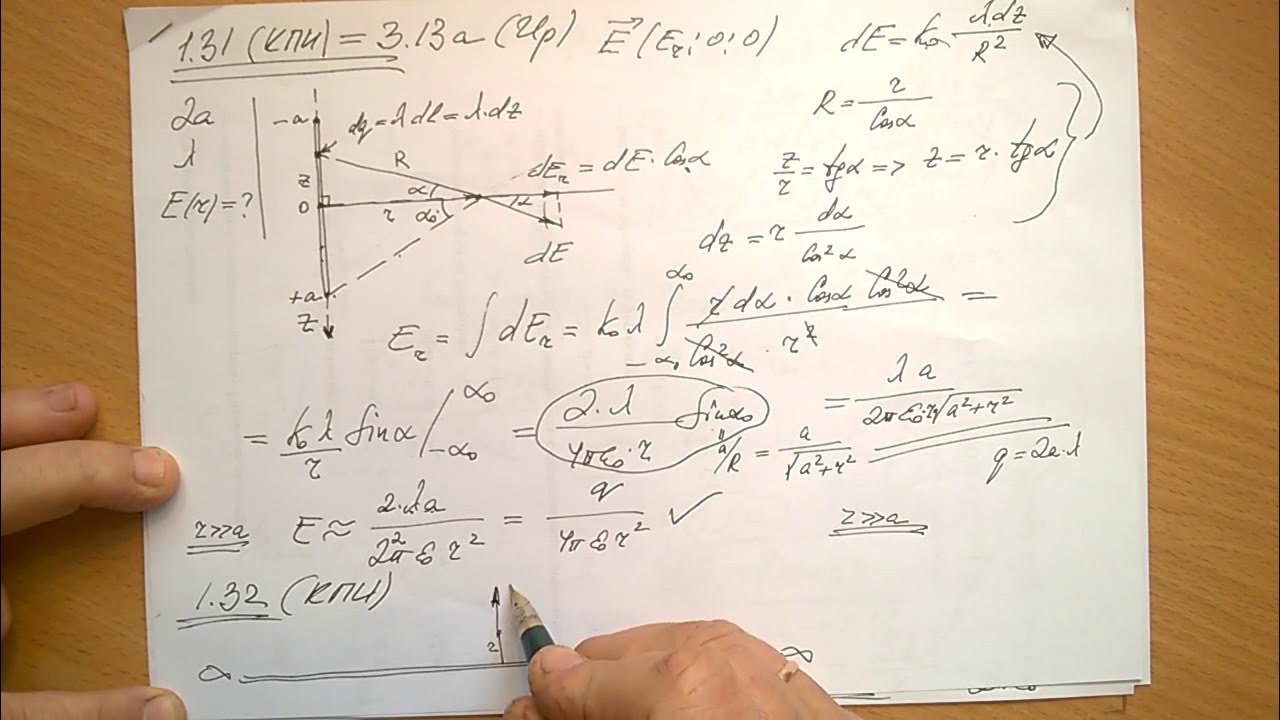 1.31 (КПИ) = 3.13а (Ир) E⃗ (Eг; 0; 0)
dE = k₀ λ·dz / R²
2a
λ
E(г) = ?
-a
dq = λdl = λ·dz
R
z
0
г
α
α₀
α
dEг = dE·Cosα
dE
+a
Z
R = г / Cosα
z/г = tgα => z = г·tgα
dz = г dα / Cos²α
Eг = ∫ dEг = k₀ λ ∫ от -α₀ до α₀ г dα · Cosα Cos²α / Cos²α · г² =
= k₀ λ / г Sinα |₋α₀ α₀ = 2·λ / 4πε₀·г Sinα₀
a/R = a / √a²+г²
= λ a / 2πε₀·г√a²+г²
q = 2a·λ
г>>a E ≈ 2·λa / 2²π ε₀ г² = q / 4π ε₀ г² ✓
г>>a
1.32 (КПИ)
г
∞ ∞